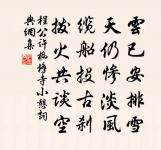 雲已安排雪
天仍慘淡風
纜船投古刹
拔火共談空
程公許寺小憩詞
典網集